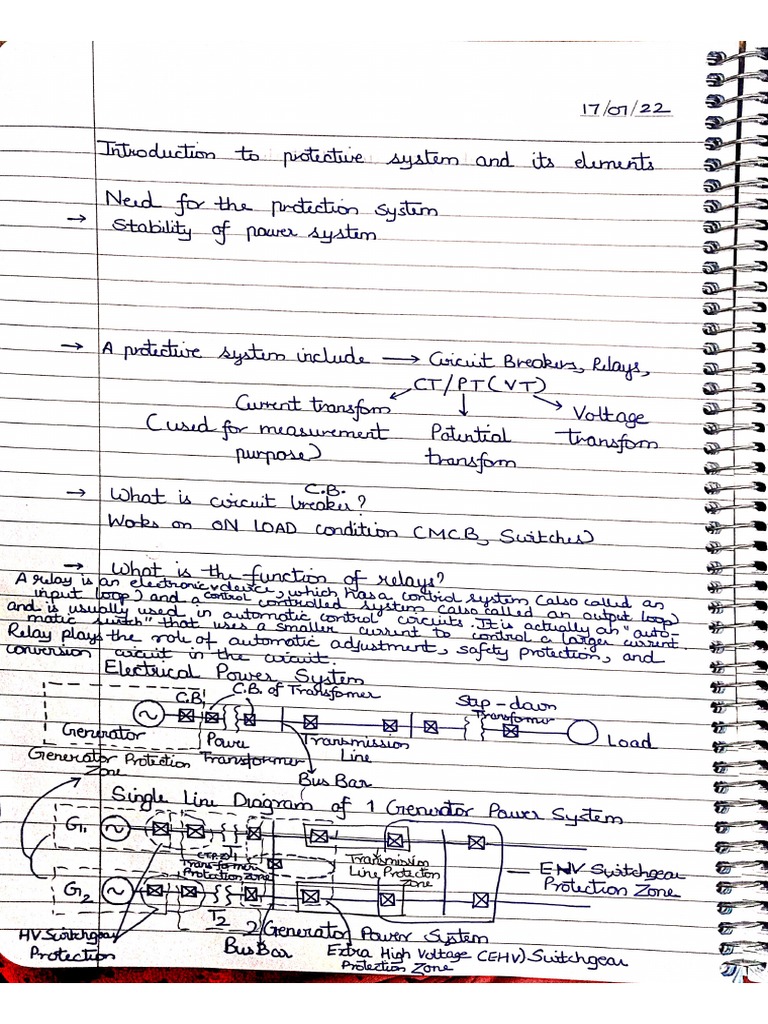 17/07/22
Introduction to protective system and its elements
Need for the protection system
→ Stability of power system
→ A protective system include → Circuit Breakers, Relays,
CT/PT(VT)
Current transform
(used for measurement
purpose)
Potential
transform
Voltage
transform
C.B.
→ What is circuit breaker?
Works on ON LOAD condition (MCB, Switches)
→ What is the function of relays?
A relay is an electronic device, which has a control system (also called an
input loop) and a control controlled system (also called an output loop)
and is usually used in automatic control circuits. It is actually an "auto-
matic switch" that uses a smaller current to control a larger current.
Relay plays the role of automatic adjustment, safety protection, and
conversion circuit in the circuit.
Electrical Power System
C.B.
C.B. of Transformer
Step-down
Transformer
Generator
Power
Transformer
Transmission
Line
Load
Generator Protection
Zone
Bus Bar
Single Line Diagram of 1 Generator Power System
G1
Transformer
Protection Zone
Transmission
Line Protection
Zone
EHV Switchgear
Protection Zone
G2
T2
2 Generator Power System
HV Switchgear
Protection
Bus Bar
Extra High Voltage (EHV) Switchgear
Protection Zone